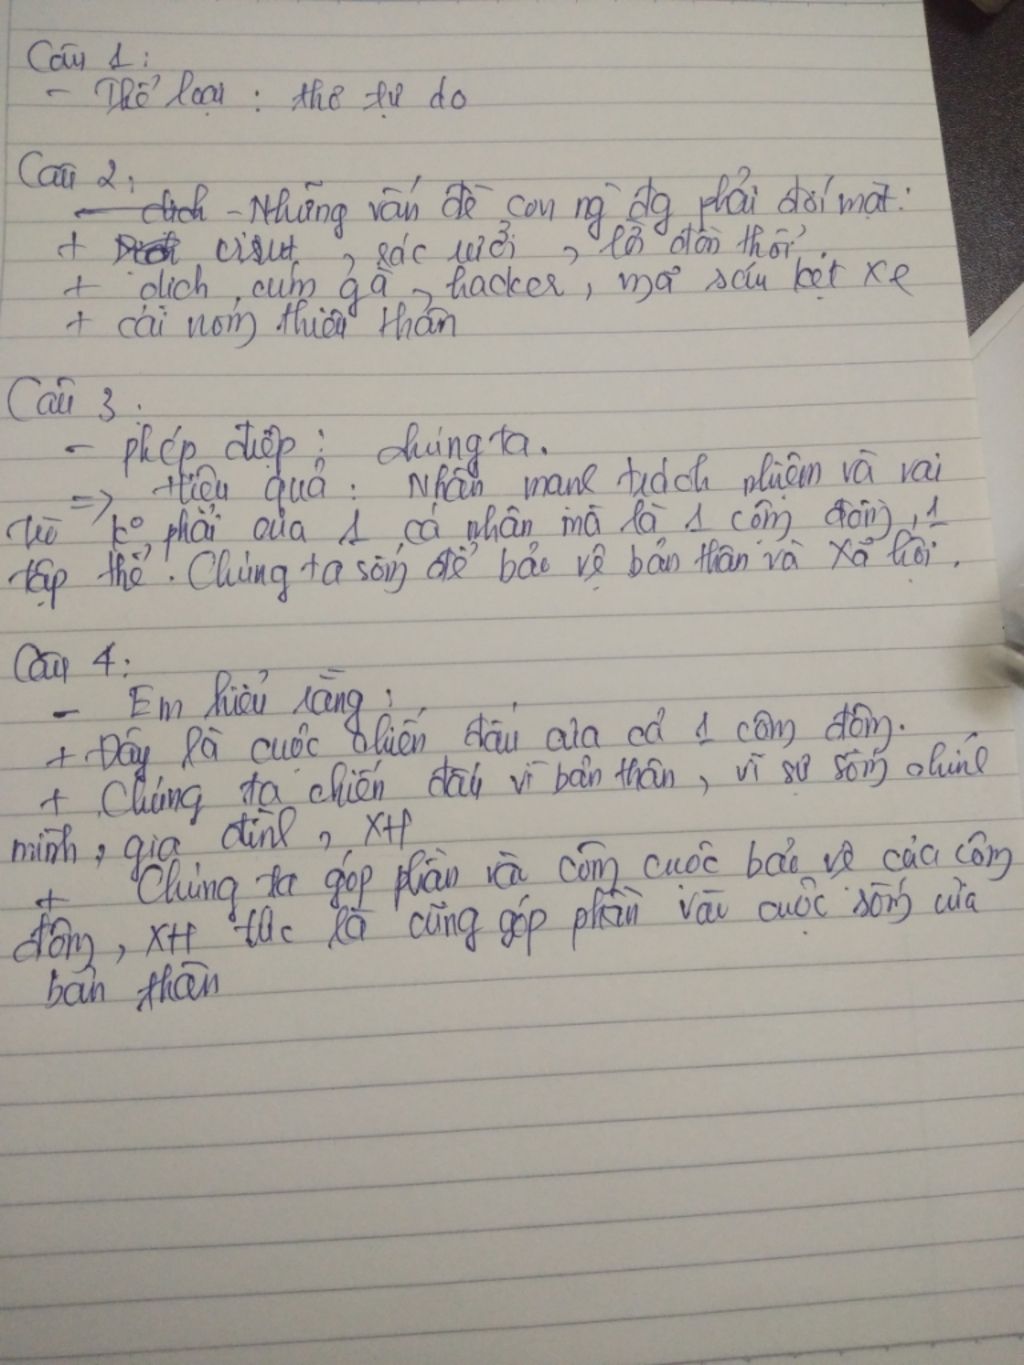 Câu 1:
- Thể loại : thơ tự do
Câu 2:
- Những vấn đề con ng` đg phải đối mặt:
+ virut , rác rưởi , lời đồn thổi
+ dịch cúm gà , hacker, mã sáu kẹt xe
+ cái nóng thiêu thân
Câu 3:
- phép điệp : chúng ta.
=> Hiệu quả : Nhấn mạnh trách nhiệm và vai
trò ko phải của 1 cá nhân mà là 1 cộng đồng, 1
tập thể. Chúng ta sống để bảo vệ bản thân và xã hội.
Câu 4:
- Em hiểu rằng :
+ Đây là cuộc chiến đấu của cả 1 cộng đồng.
+ Chúng ta chiến đấu vì bản thân, vì sự sống chính
mình, gia đình, XH
+ Chúng ta góp phần và công cuộc bảo vệ của cộng
đồng, XH tức là cũng góp phần vào cuộc sống của
bản thân